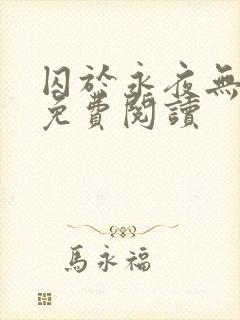 囚於永夜無
免費閱讀
馬永福